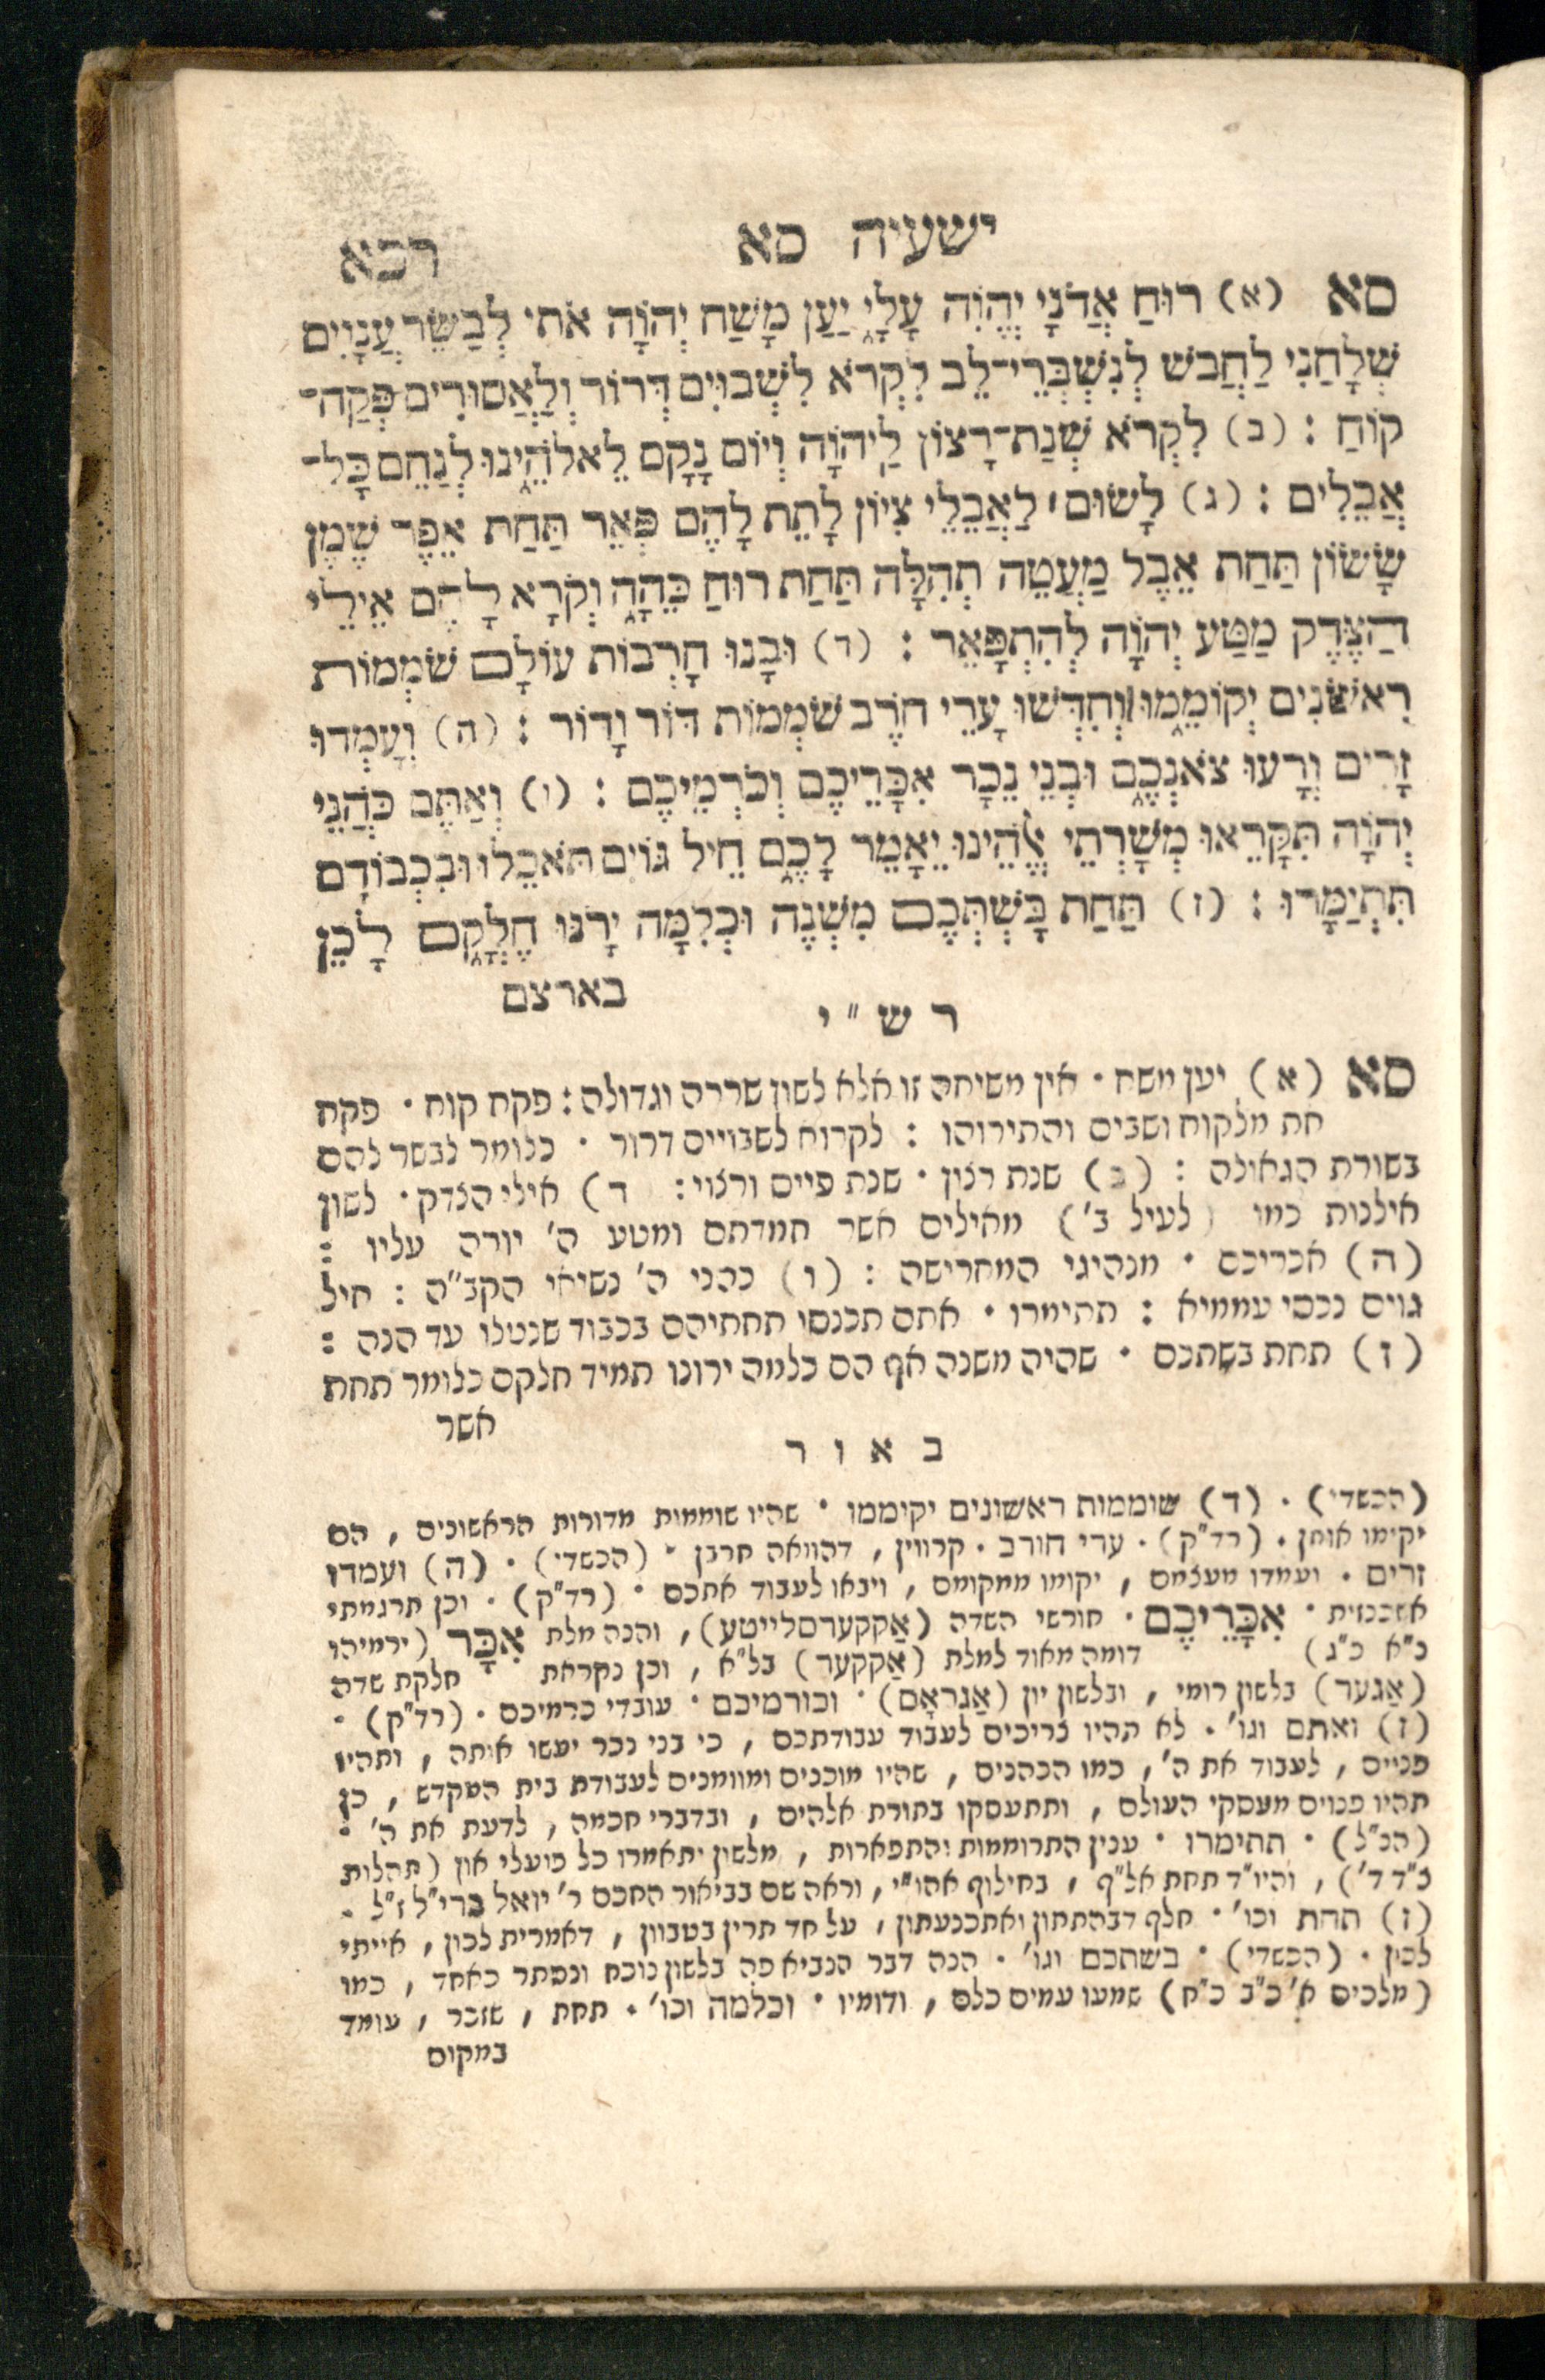 ישעיה סא רכא
סא (א) רוּחַ אֲדֹנָי יְהֹוִה עָלָי יַעַן מָשַׁח יְהֹוָה אֹתִי לְבַשֵּׂר עֲנָוִים
שְׁלָחַנִי לַחֲבֹשׁ לְנִשְׁבְּרֵי־לֵב לִקְרֹא לִשְׁבוּיִם דְּרוֹר וְלַאֲסוּרִים פְּקַח־
קוֹחַ : (ב) לִקְרֹא שְׁנַת־רָצוֹן לַיהֹוָה וְיוֹם נָקָם לֵאלֹהֵינוּ לְנַחֵם כָּל־
אֲבֵלִים : (ג) לָשׂוּם׀ לַאֲבֵלֵי צִיּוֹן לָתֵת לָהֶם פְּאֵר תַּחַת אֵפֶר שֶׁמֶן
שָׂשׂוֹן תַּחַת אֵבֶל מַעֲטֵה תְהִלָּה תַּחַת רוּחַ כֵּהָה וְקֹרָא לָהֶם אֵילֵי
הַצֶּדֶק מַטַּע יְהֹוָה לְהִתְפָּאֵר : (ד) וּבָנוּ חָרְבוֹת עוֹלָם שֹׁמְמוֹת
רִאשֹׁנִים יְקוֹמֵמוּ וְחִדְּשׁוּ עָרֵי חֹרֶב שֹׁמְמוֹת דּוֹר וָדוֹר : (ה) וְעָמְדוּ
זָרִים וְרָעוּ צֹאנְכֶם וּבְנֵי נֵכָר אִכָּרֵיכֶם וְכֹרְמֵיכֶם : (ו) וְאַתֶּם כֹּהֲנֵי
יְהֹוָה תִּקָּרֵאוּ מְשָׁרְתֵי אֱלֹהֵינוּ יֵאָמֵר לָכֶם חֵיל גּוֹיִם תֹּאכֵלוּ וּבִכְבוֹדָם
תִּתְיַמָּרוּ : (ז) תַּחַת בָּשְׁתְּכֶם מִשְׁנֶה וּכְלִמָּה יָרֹנּוּ חֶלְקָם לָכֵן
בארצם
ר ש " י
סא (א) יען משח · אין משיחה זו אלא לשון שררה וגדולה : פקח קוח · פקח
חת מלקוח ושבים והתירוהו : לקרוח לשבויים דרור · כלומר לבשר להם
בשורת הגאולה : (ב) שנת רצון · שנת פיים ורצוי : ד) אילי הצדק · לשון
אילנות כמו (לעיל ב') מאילים אשר חמדתם ומטע ה' יורה עליו :
(ה) אכריכם · מנהיגי המחרישה : (ו) כהני ה' נשיאי הקב"ה : חיל
גוים נכסי עממיא : תתימרו · אתם תכנסו תחתיהם בכבוד שנטלו עד הנה :
(ז) תחת בשתכם · שהיה משנה אף הם כלמה ירונו תמיד חלקם כלומר תחת
אשר
ב א ו ר
(הכשדי) · (ד) שוממות ראשונים יקיממו · שהיו שוממות מדורות הראשונים , הם
יקימו אותן · (רד"ק) · ערי חורב · קרווין , דהוואה חרבן · (הכשדי) · (ה) ועמדו
זרים · ועמדו מעצמם , יקומו ממקומם , ויבאו לעבוד אתכם · (רד"ק) · וכן תרגמתי
אשכנזית · אִכָּרֵיכֶם · חורשי השדה (אַקקערסלייטע) , והנה מלת אִכָּר (ירמיהו
נ"א כ"ג) דומה מאוד למלת (אַקקער) בל"א , וכן נקראת חלקת שדה
(אַגער) בלשון רומי , ובלשון יון (אַגראָס) · וכורמיכם · עובדי כרמיכם · (רד"ק) ·
(ו) ואתם וגו' · לא תהיו צריכים לעבוד עבודתכם , כי בני נכר יעשו אותה , ותהיו
פנוים , לעבוד את ה' , כמו הכהנים , שהיו מוכנים ומזומנים לעבודת בית המקדש , כן
תהיו פנוים מעסקי העולם , ותתעסקו בתורת אלהים , ובדברי חכמה , לדעת את ה' ·
(הנ"ל) · תתימרו · ענין התרוממות והתפארות , מלשון יתאמרו כל פועלי און (תהלות
צ"ד ד') , והיו"ד תחת אל"ף , בחילוף אהו"י , וראה שם בביאור החכם ר' יואל ברי"ל ז"ל ·
(ז) תחת וכו' · חלף דבהתתון ואתכנעתון , על חד תרין בטבוון , דאמרית לכון , אייתי
לכון · (הכשדי) · בשתכם וגו' · הנה דבר הנביא פה בלשון נוכח ונסתר כאחד , כמו
(מלכים א' כ"ב כ"ח) שמעו עמים כלם , ודומיו · וכלמה וכו' · תחת , שזכר , עומד
במקום